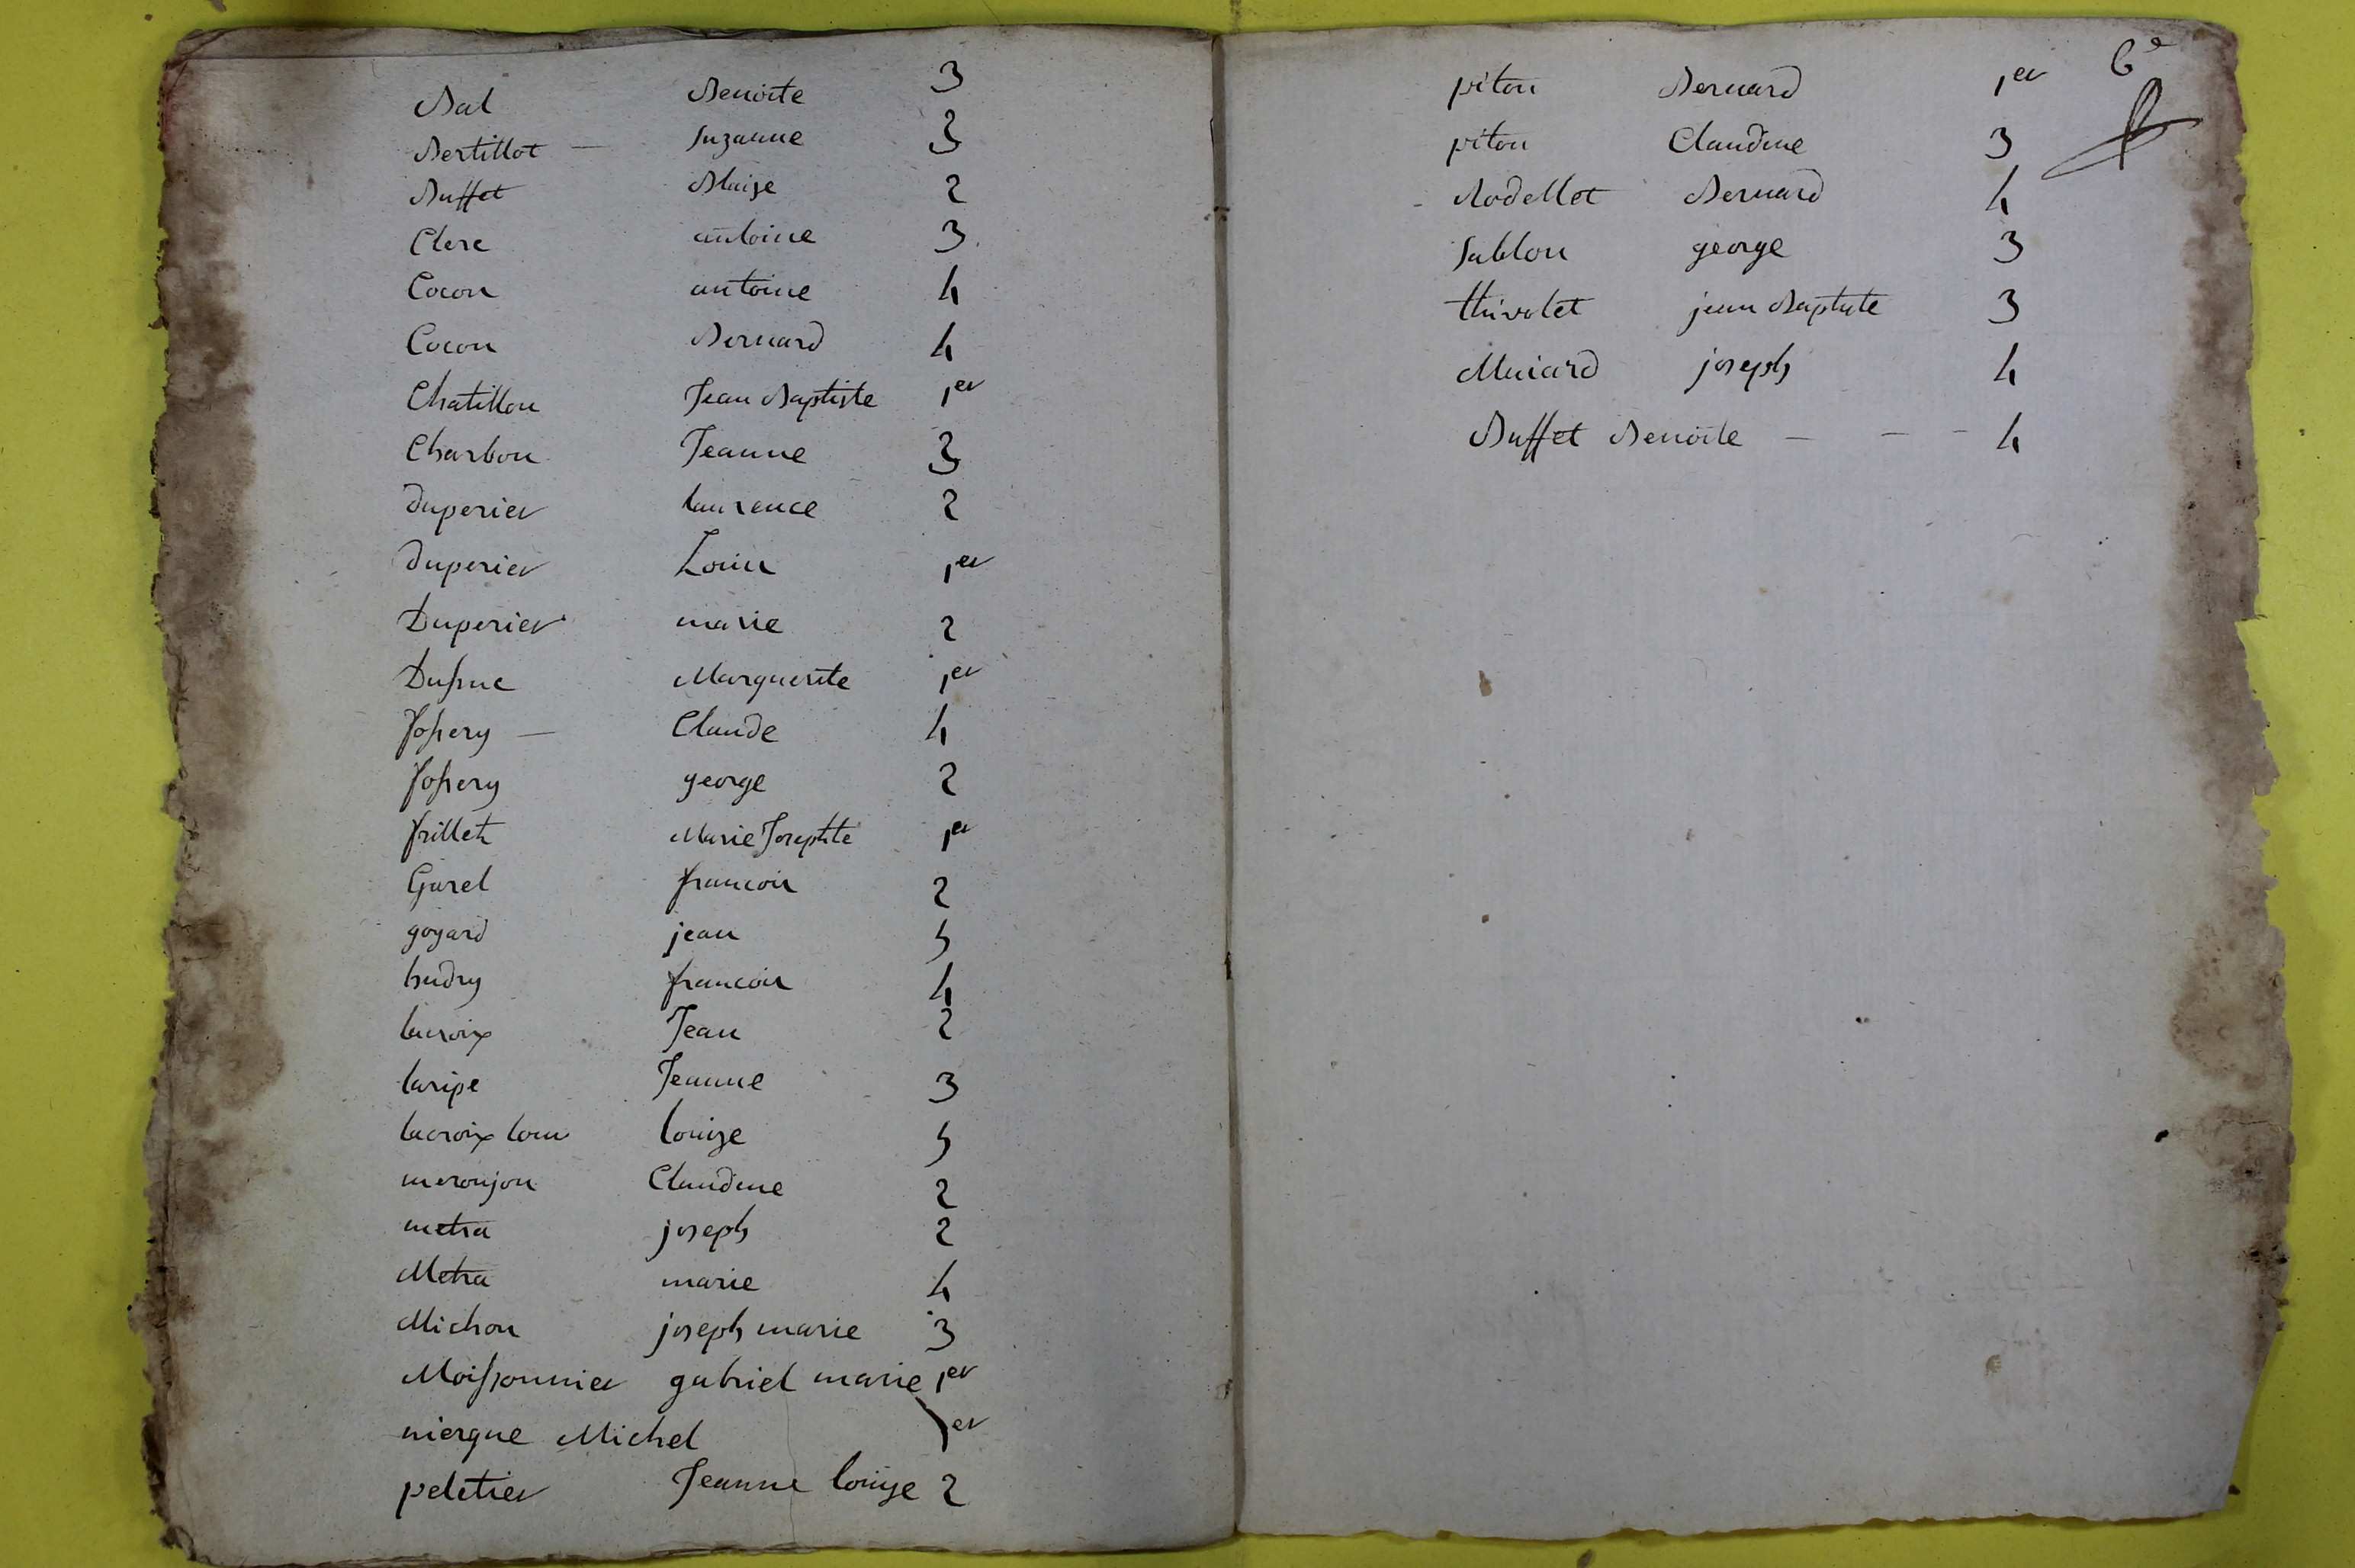 Bal Benoite 3
Bertillot — Suzanne 3
Buffet Blaize 2
Clerc antoine 3
Cocon antoine 4
Cocon Bernard 4
Chatillon Jean Baptiste 1er
Charbon Jeanne 3
duperier laurence 2
duperier Louis 1er
Duperier marie 2
Marguerite 1er
fossery — Claude 4
fossery george 2
frillet Marie Josephte 1er
Garel francois 2
goyard jean 5
hudry francois 4
lacroix Jean 2
laripe Jeanne 3
lacroix louis louize 5
meronjon Claudine 2
metra joseph 2
Metra marie 4
Michon joseph marie 3
Moissonnier gabriel marie 1er
niergue Michel 1er
peletier Jeanne louize 2
6e
piton Bernard 1er
piton Claudine 3
Rodellot Bernard 4
Sablon george 3
thivolet jean Baptiste 3
joseph 4
Buffet Benoite — — — 4